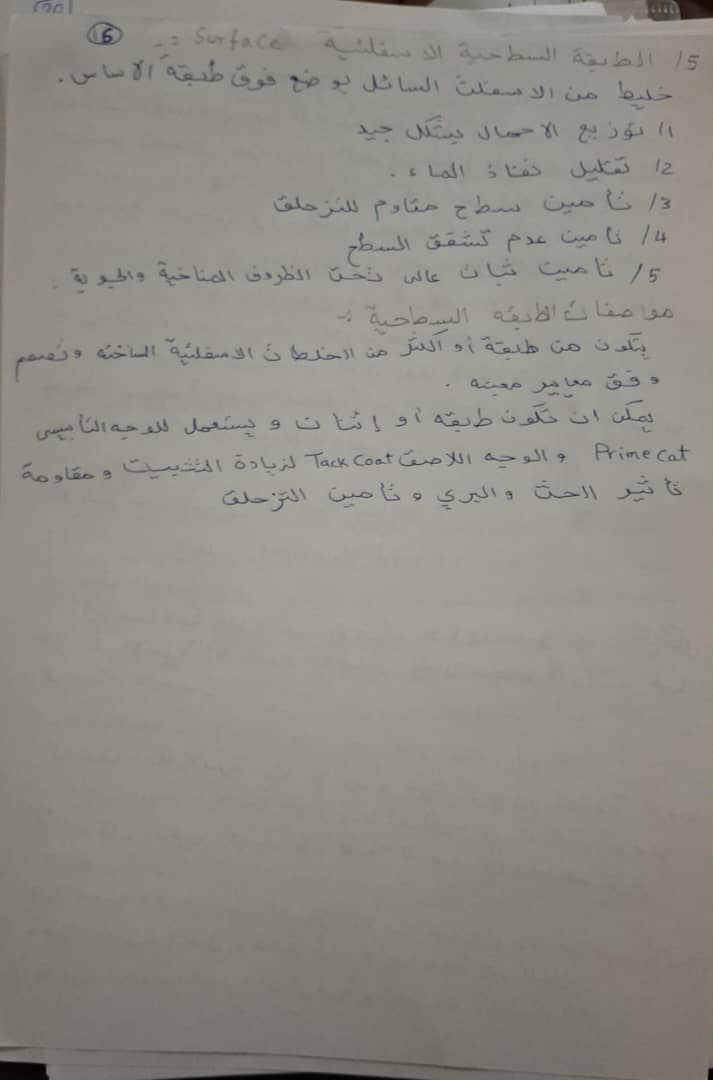 16
5/ الطبقة السطحية الاسفلتية Surface :-
خليط من الاسفلت السائل يوضع فوق طبقة الاساس.
1/ توزيع الاحمال بشكل جيد
2/ تقليل نفاذ الماء.
3/ تأمين سطح مقاوم للتزحلق
4/ تأمين عدم تشقق السطح
5/ تأمين ثبات عالى تحت الظروف المناخية والجوية.
مواصفات الطبقه السطحية :-
يتكون من طبقة أو أكثر من الخلطات الاسفلتية الساخنه وتصمم
وفق معايير معينه.
يمكن ان تكون طبقه أو إثنان ويستعمل للوجه التأسيسى
Prime cat والوجه اللاصق Tack coat لزيادة التثبيت ومقاومة
تأثير الحت والبري وتأمين التزحلق